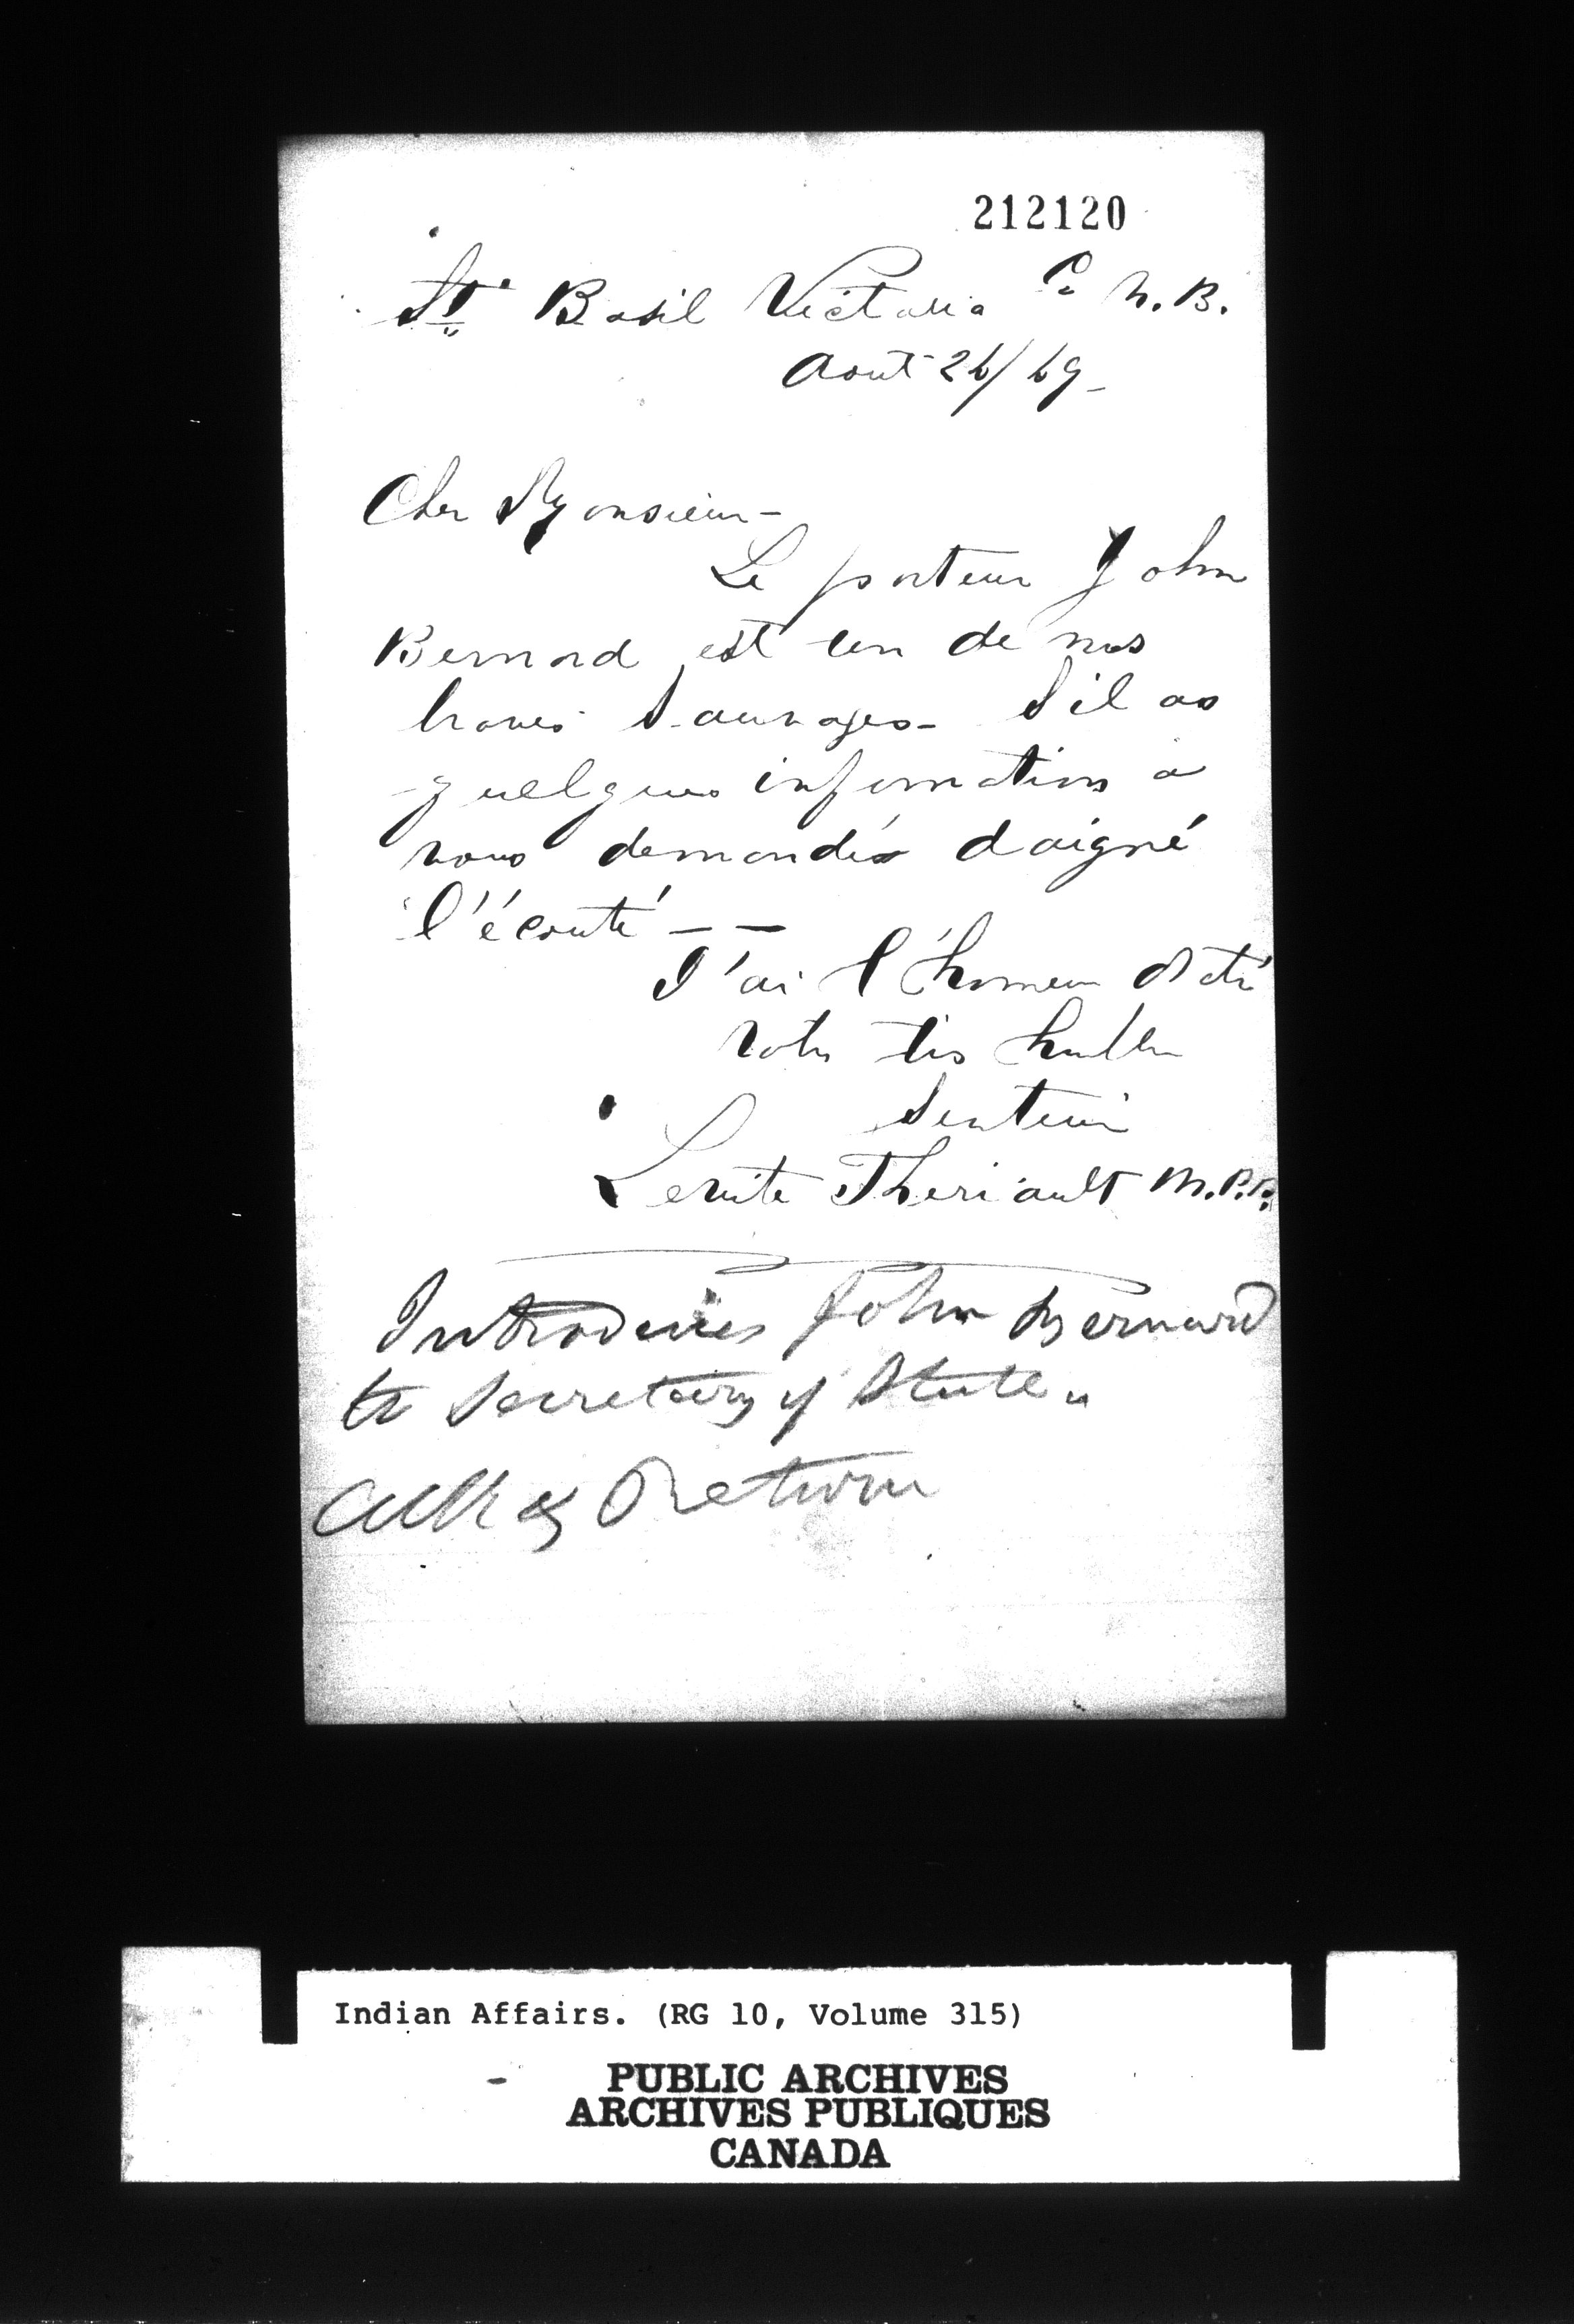 212120
St. Basil Victoria Co N.B.
Aout 26/69-
Cher Monsieur-
Le porteur John
Bernard est un de nos
braves Sauvages- S'il as
quelques informations a
vous demandés daigné
l'écouté - -
J'ai l'honneur d'etré
Votre tres humble
Serteur
Levite Theriault M.P.P.
Introduces John Bernard
to Secretary of State
Ack & Return
Indian Affairs. (RG 10, Volume 315)
PUBLIC ARCHIVES
ARCHIVES PUBLIQUES
CANADA